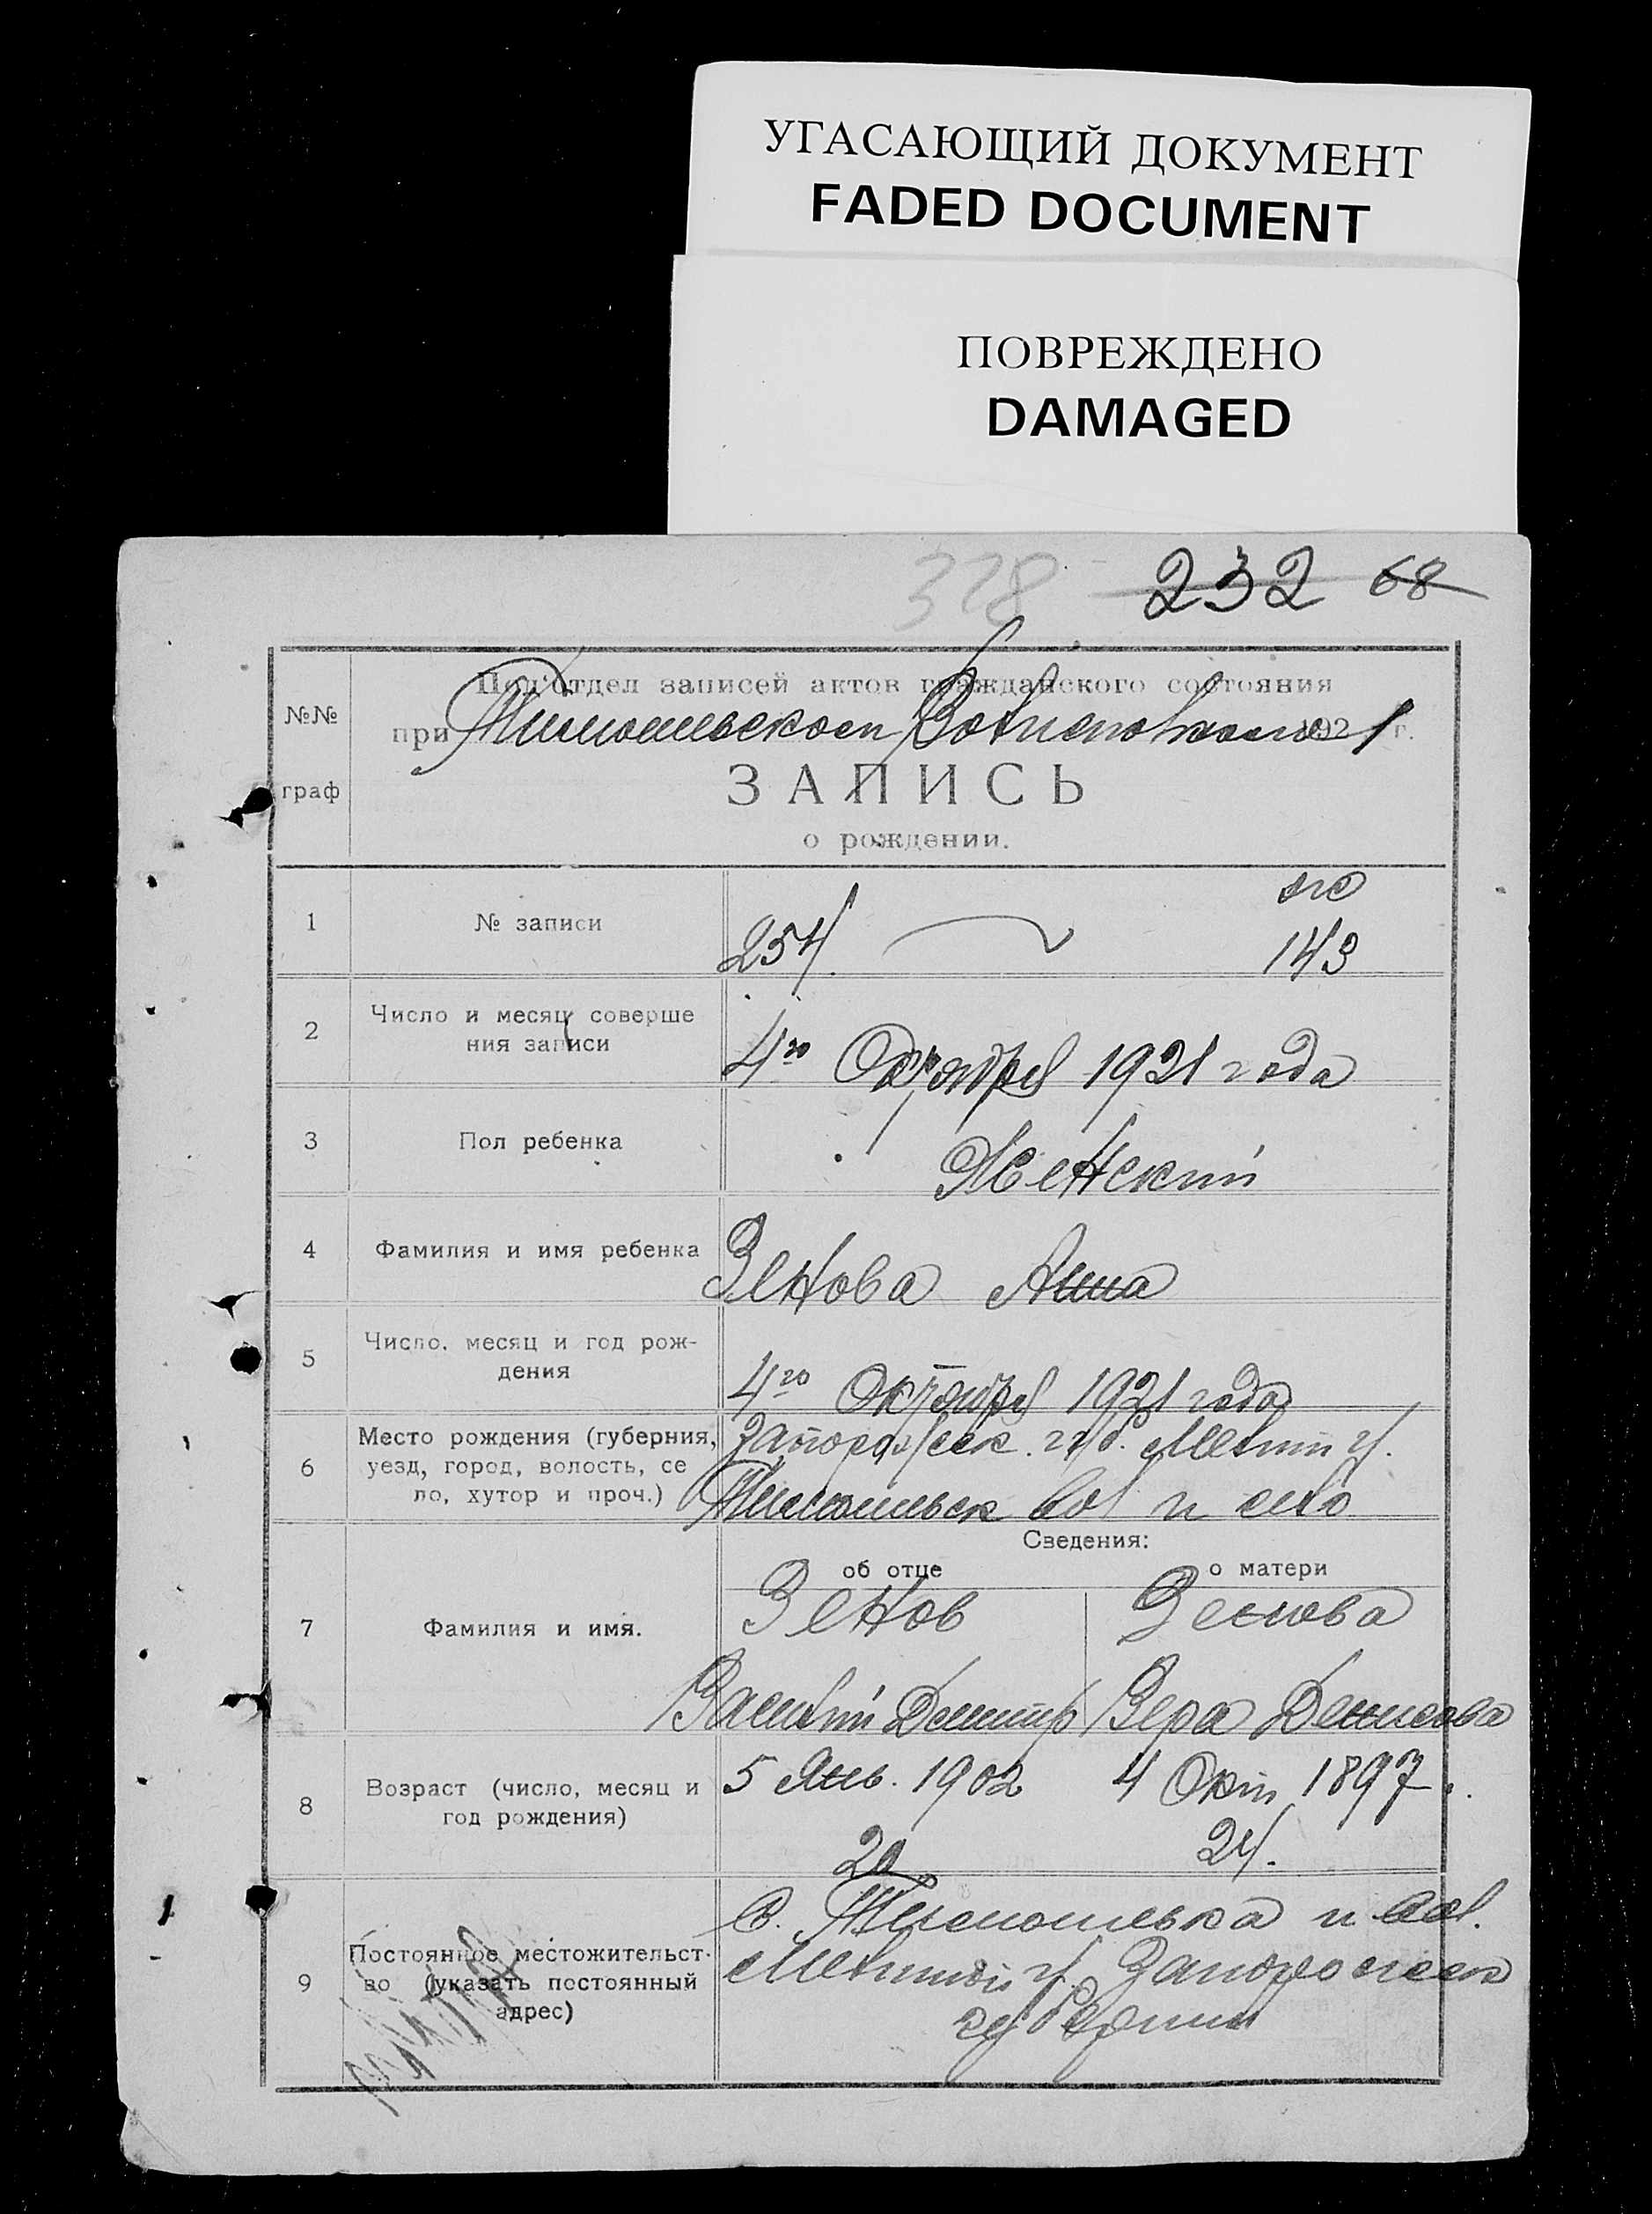 УГАСАЮЩИЙ ДОКУМЕНТ
FADED DOCUMENT
ПОВРЕЖДЕНО
DAMAGED
328 232 68
Под'отдел записей актов гражданского состояния
при Тимошевском Волисполкоме 1921 г.
№№
граф
ЗАПИСЬ
о рождении.
жс
1 № записи 254. 143
2 Число и месяц соверше
ния записи 4го Октября 1921 года
3 Пол ребенка Женский
4 Фамилия и имя ребенка Зенова Анна
5 Число. месяц и год рож-
дения 4го Октября 1921 года
6 Место рождения (губерния, Запорожск. губ. Мелит у.
уезд, город, волость, се
ло, хутор и проч.) Тимошевск вол и село
Сведения:
об отце о матери
7 Фамилия и имя. Зенов Зенова
Василий Дмитр Вера Денисова
8 Возраст (число, месяц и
год рождения) 5 Янв. 1902 4 Окт 1897.
20 24.
9 Постоянное местожительст-
во (указать постоянный
адрес) с. Тимошевка и вол.
Мелитой у. Запорожск
губернии